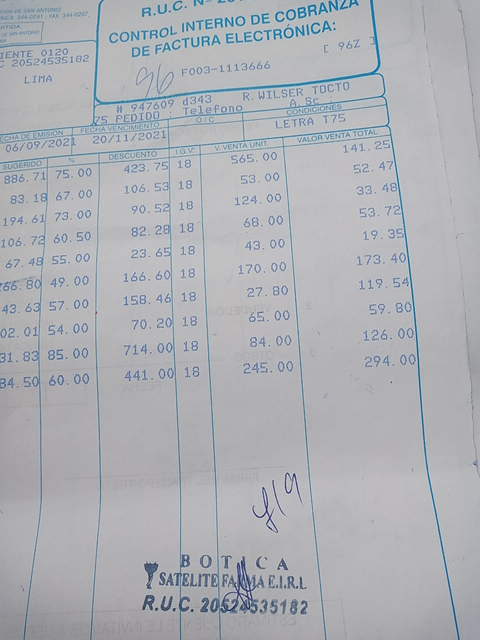 R.U.C. Nº 20
CONTROL INTERNO DE COBRANZA
DE FACTURA ELECTRÓNICA:
[ 96Z ]
96 F003-1113666
IENTE 0120
C 20524535182
LIMA
# 947609 d343 R.WILSER TOCTO
75 PEDIDO : Telefono A.Sc
FECHA DE EMISIÓN FECHA VENCIMIENTO O / C CONDICIONES
06/09/2021 20/11/2021 LETRA T75
SUGERIDO % DESCUENTO I.G.V. V. VENTA UNIT. VALOR VENTA TOTAL
886.71 75.00 423.75 18 565.00 141.25
83.18 67.00 106.53 18 53.00 52.47
194.61 73.00 90.52 18 124.00 33.48
106.72 60.50 82.28 18 68.00 53.72
67.48 55.00 23.65 18 43.00 19.35
66.80 49.00 166.60 18 170.00 173.40
43.63 57.00 158.46 18 27.80 119.54
02.01 54.00 70.20 18 65.00 59.80
31.83 85.00 714.00 18 84.00 126.00
84.50 60.00 441.00 18 245.00 294.00
BOTICA
SATELITE FARMA E.I.R.L
R.U.C. 20524535182